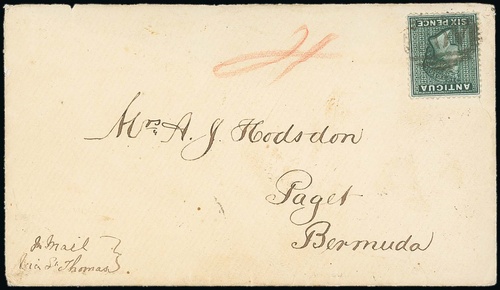 SIX PENCE
ANTIGUA
4
Mrs. A. J. Hodsdon
Paget
Bermuda
Mail
via St. Thomas